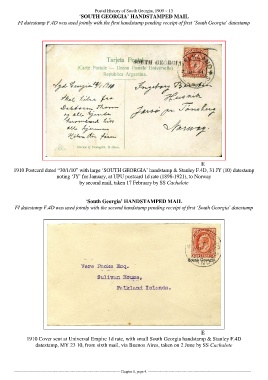 Postal History of South Georgia, 1909 – 13
'SOUTH GEORGIA' HANDSTAMPED MAIL
FI datestamp F.4D was used jointly with the first handstamp pending receipt of first 'South Georgia' datestamp
Tarjeta Postal
SOUTH GEORGIA
Carte Postale — Unión Postale Universelle
República Argentina
Norway.
E
1910 Postcard dated "30/1/10" with large 'SOUTH GEORGIA' handstamp & Stanley F.4D, 31 JY (10) datestamp
noting 'JY' for January, at UPU postcard 1d rate (1896-1921), to Norway
by second mail, taken 17 February by SS Cachalote
'South Georgia' HANDSTAMPED MAIL
FI datestamp F.4D was used jointly with the second handstamp pending receipt of first 'South Georgia' datestamp
South Georgia.
Vere Packe Esq.
Sulivan House,
Falkland Islands.
E
1910 Cover sent at Universal Empire 1d rate, with small South Georgia handstamp & Stanley F.4D
datestamp, MY 23 10, from sixth mail, via Buenos Aires, taken on 2 June by SS Cachalote
Chapter 4, page 4